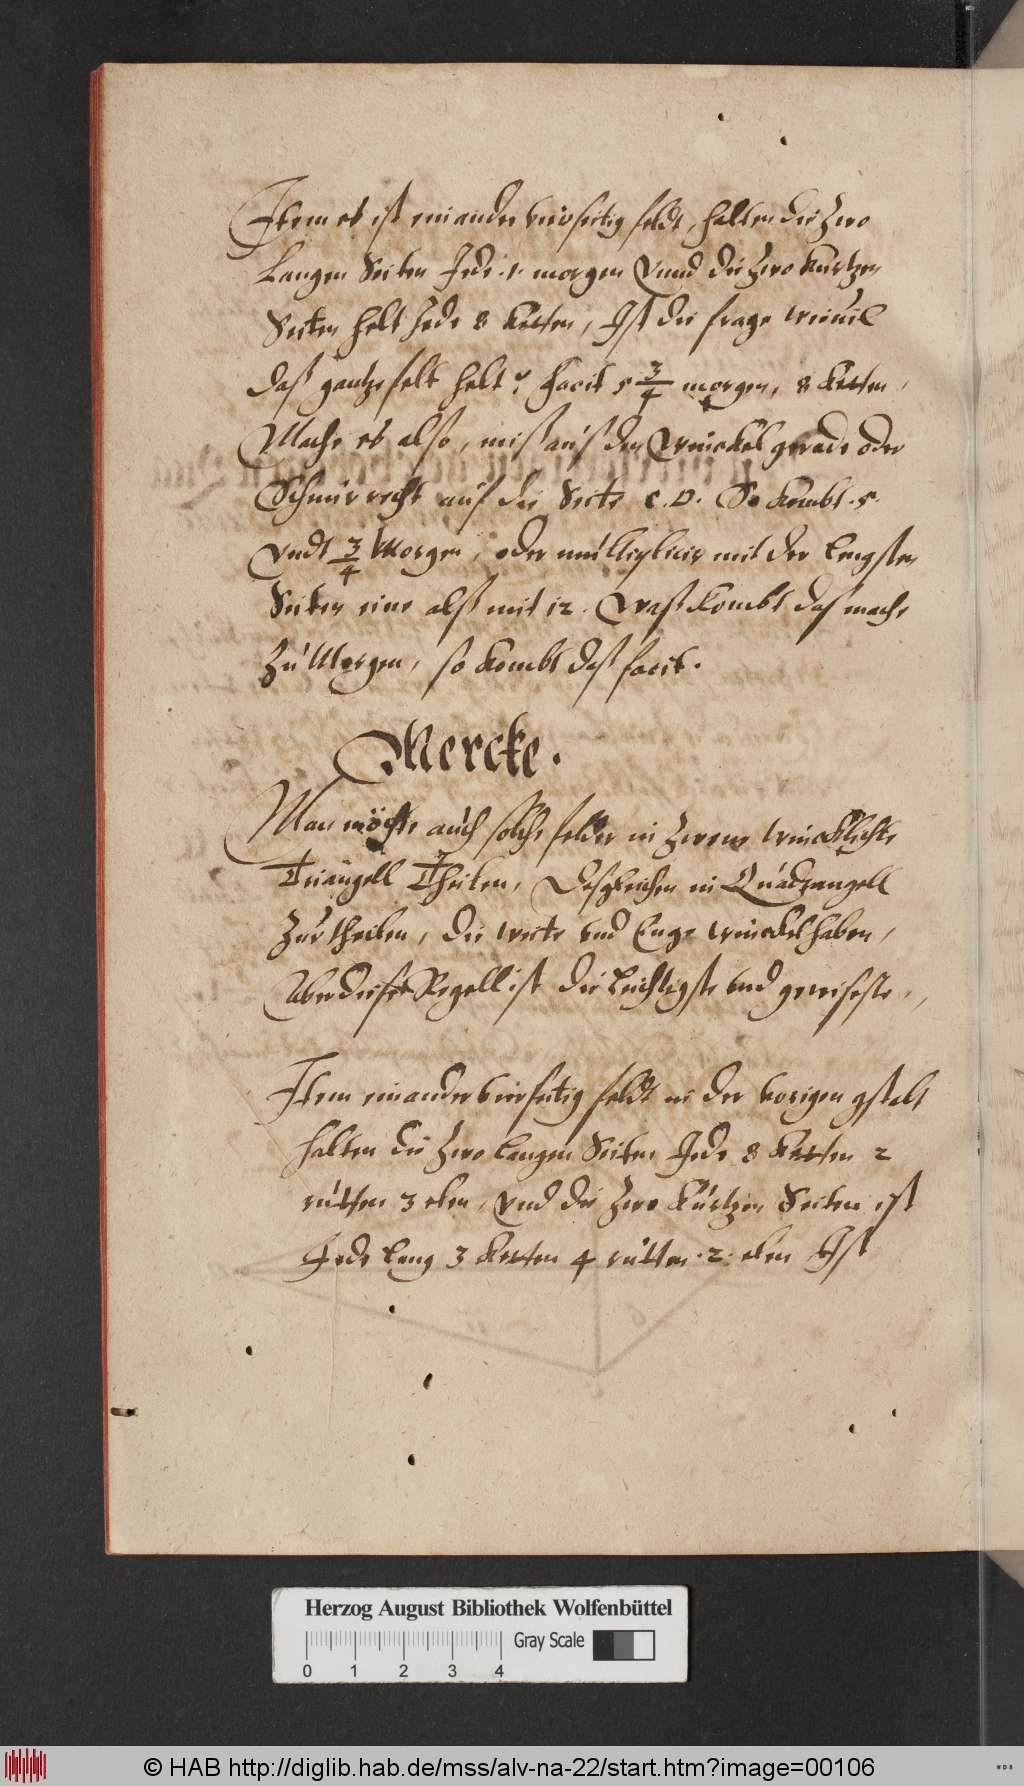 Item es ist ein ander vierseitig feldt, halten die zwo
Langen Seiten Jede 1 morgen Vnnd die zwo kurtzen
Seiten helt Jede 8 Ketten, Ist die frage wieuiel
daß gantze feldt helt? Facit 5 3/4 morgen, 8 Ketten,
Mache es also, miß auß den Winckel gerade oder
Schnurrecht auf die Seite C.D. So kombt .5.
Vndt 3/4 Morgen, oder multiplicir mit der lengsten
Seiten eine alß mit 12. Waß kombt daß mache
Zu Morgen, so kombt daß facit.
Mercke.
Man möchte auch solche felder in zween wincklichte
Triangell Theilen, Desgleichen in Quadrangell
Zurtheilen, die weite vnd Enge winckel haben,
Aber diese Regell ist die Leichtigste vnd geweiseste,
Item ein ander vierseitig feldt in der vorigen gstalt
halten die zwo langen Seiten Jede 8 Ketten 2
rutten 3 elen, Vnd die zwo kurtzen Seiten ist
Jede lang 3 Ketten 4 rutten .2. elen Ist
Herzog August Bibliothek Wolfenbüttel
Gray Scale
0 1 2 3 4
© HAB http://diglib.hab.de/mss/alv-na-22/start.htm?image=00106